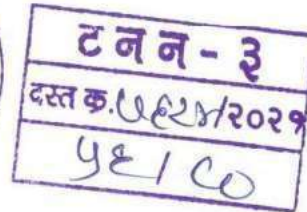 ट न न - ३
दस्त क्र. /२०२१
५६/८०